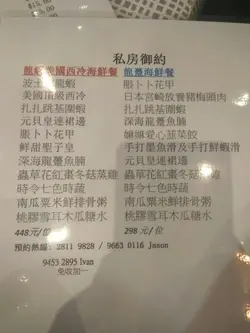 $15.00
私房御約
龍躉海鮮餐
國西冷海鮮餐
波士龍蝦
美國頂級西冷
扎扎跳基圍蝦
元貝皇連裙邊
脹卜卜花甲
鮮甜聖子皇
深海龍躉魚腩
蟲草花紅棗冬菇菜雞
時令七色時蔬
南瓜粟米鮮排骨粥
桃膠雪耳木瓜糖水
448元/位
脹卜卜花甲
日本宮崎放養豬梅頭肉
扎扎跳基圍蝦
元貝皇連裙邊
嫲嫲愛心韮菜餃
手打墨魚滑及手打鮮蝦滑
深海龍躉魚腩
蟲草花紅棗冬菇菜雞
時令七色時蔬
南瓜粟米鮮排骨粥
桃膠雪耳木瓜糖水
298 元/位
預約熱線: 2811 9828 / 9663 0116 Jason
9453 2895 Ivan
免收加一